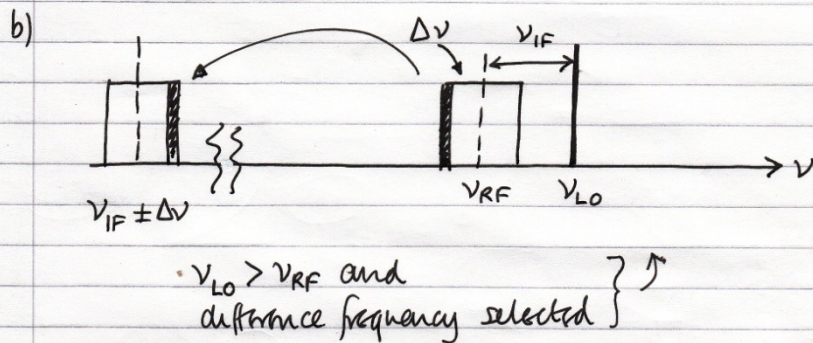 b)
Δν
ν_IF
ν
ν_RF
ν_LO
ν_IF ± Δν
ν_LO > ν_RF and
difference frequency selected